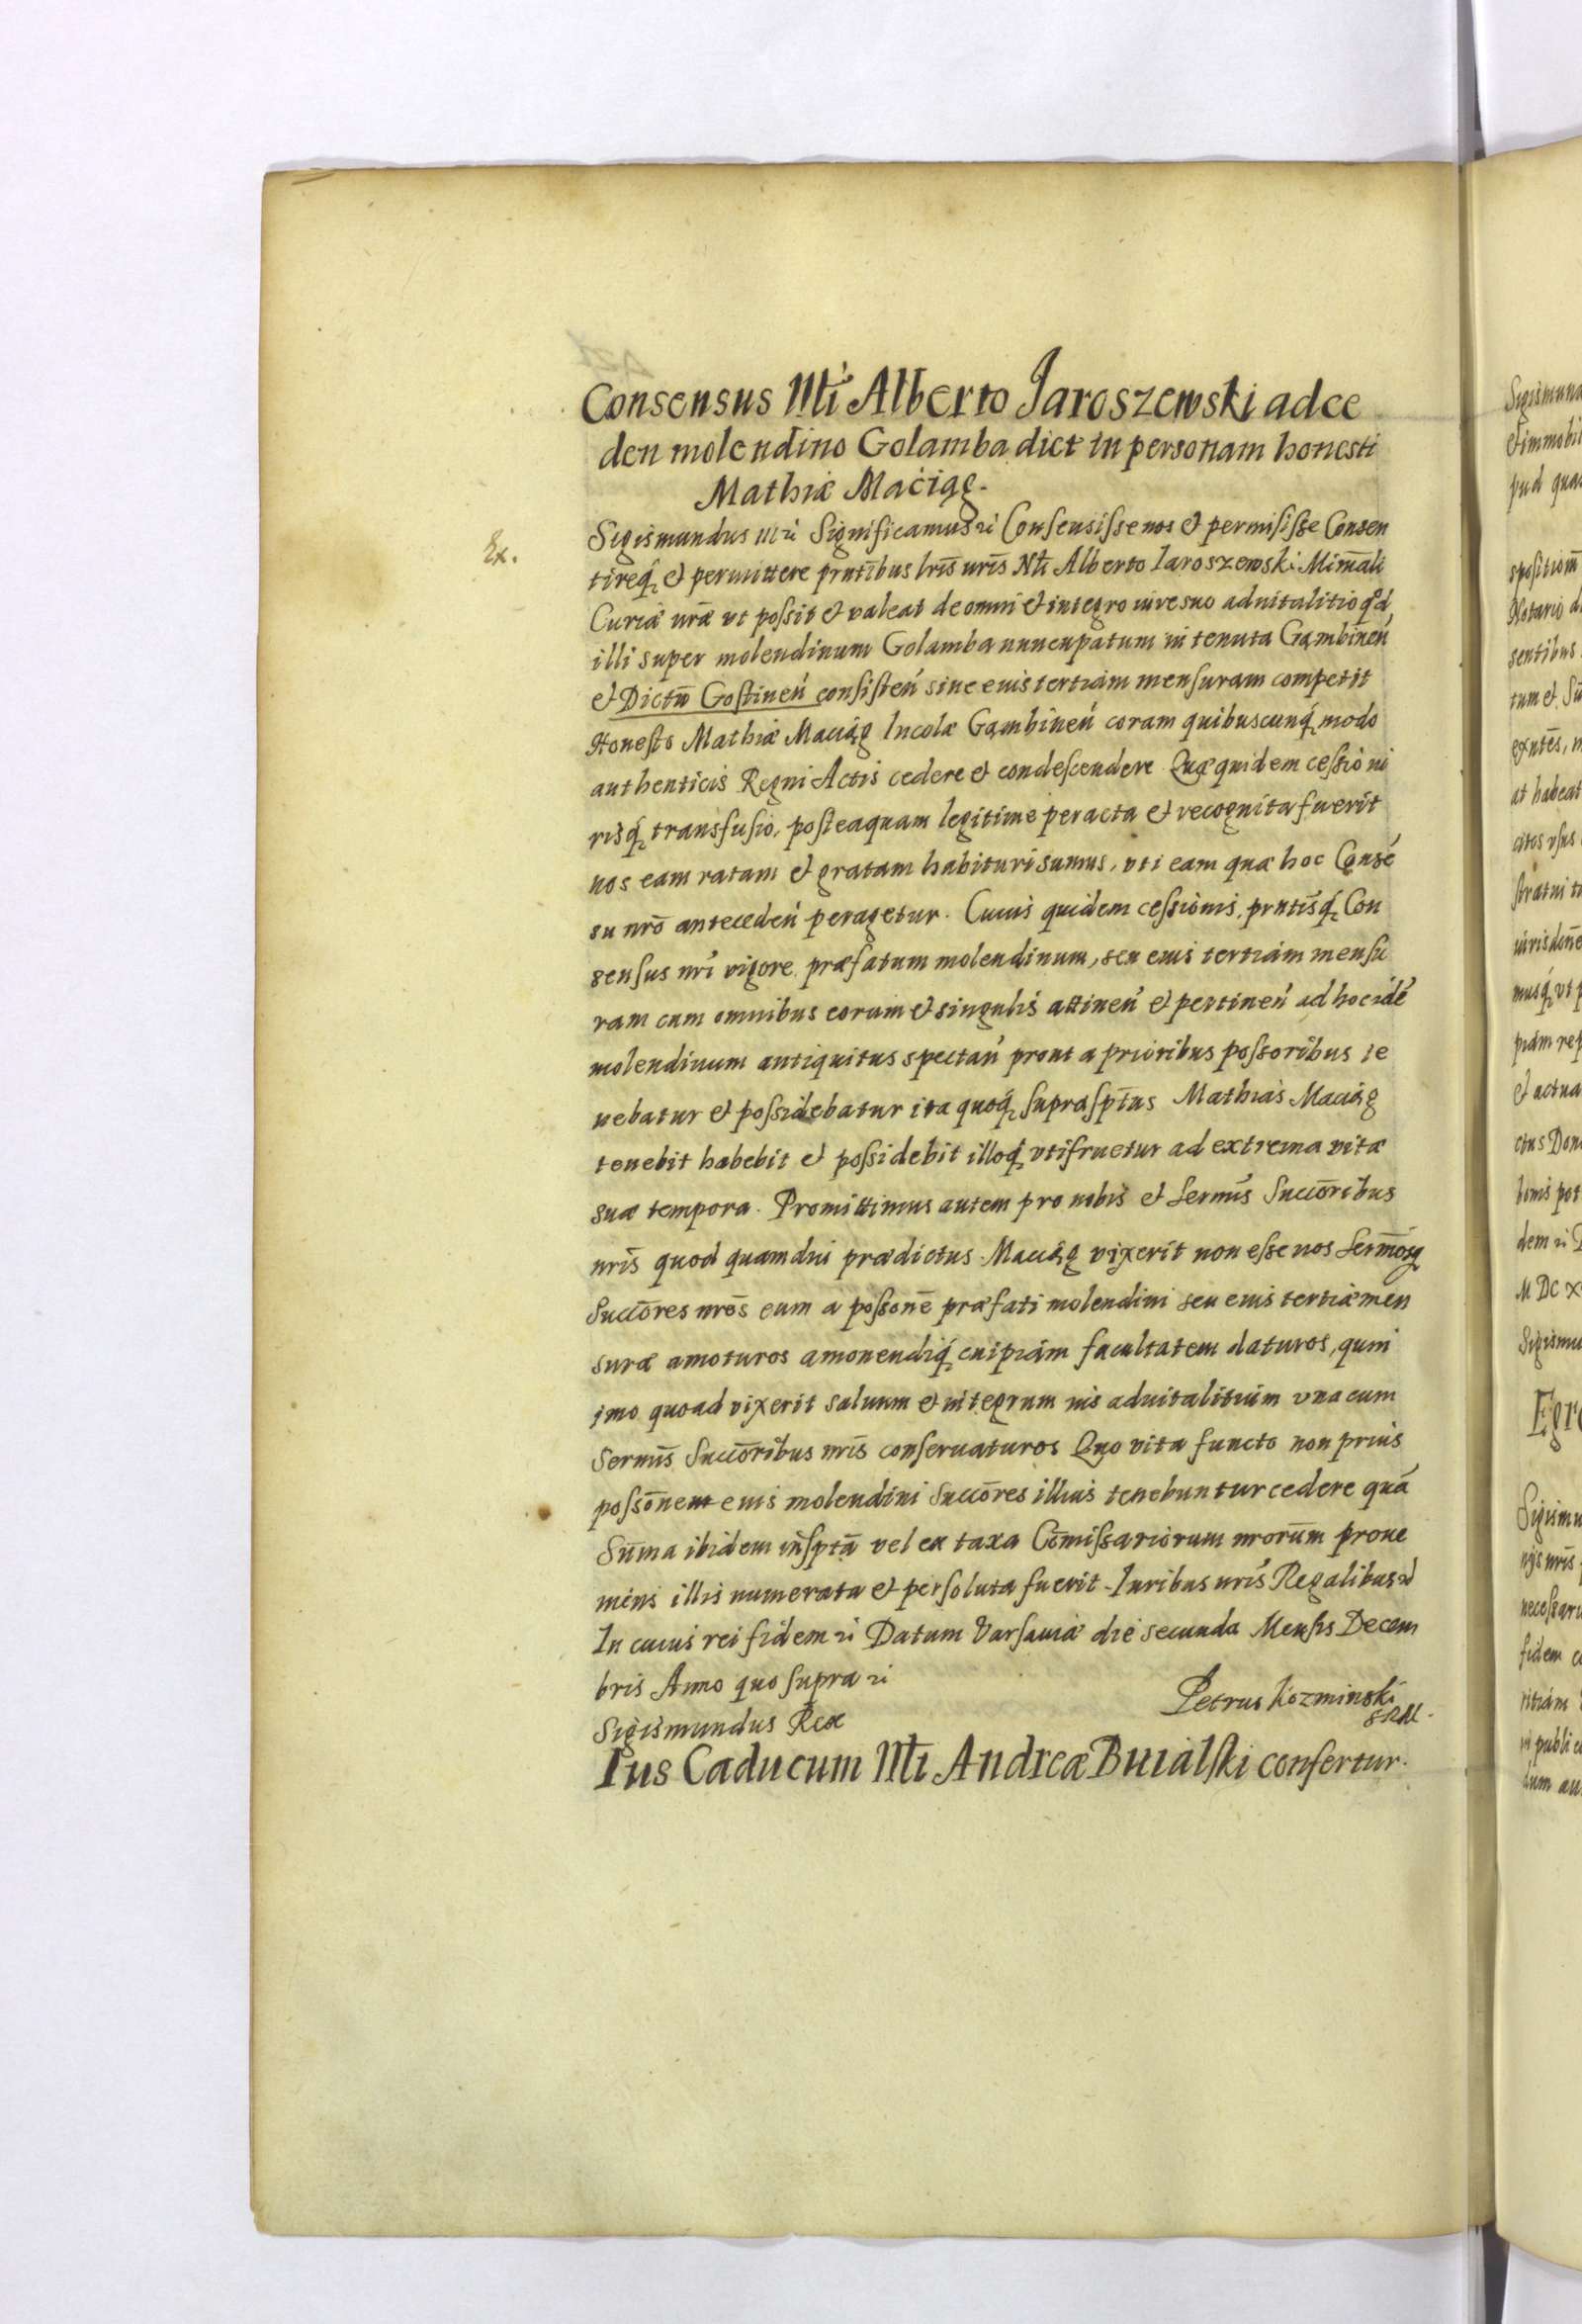 Consensus Nłi Alberto Jaroszewski ad ce
den molendino Golamba dict in personam honesti
Mathiæ Maciąg.
Ex.
Sigismundus III etc Significamus etc Consensisse nos et permisisse Consen
tireq, et permittere prntibus lris nris Nłi Alberto Iaroszewski Minali
Curiæ nræ ut possit et valeat de omni et integro iure suo aduitalitio qd
illi super molendinum Golamba nuncupatum in tenuta Gąmbinen
et Dictu Gostinen consisten siue euis tertiam mensuram competit
Honesto Mathiæ Maciąg Incolæ Gąmbinen coram quibuscunq, modo
authenticis Regni Actis cedere et condescendere Quæ quidem cessio iu
risq, transfusio, posteaquam legitime peracta et recognita fuerit
nos eam ratam et gratam habituri sumus, uti eam quæ hoc Conse
su nro anteceden peragetur. Cuius quidem cessionis, prntisq, Con
sensus nri vigore præfatum molendinum, seu eius tertiam mensu
ram cum omnibus eorum et singulis attinen et pertinen ad hoc ide
molendinum antiquitus spectan prout a prioribus possoribus te
nebatur et possidebatur ita quoq, suprasptus Mathias Maciąg
tenebit habebit et possidebit illoq, utifruetur ad extrema vitæ
suæ tempora. Promittimus autem pro nobis et Sermis Succoribus
nris quod quamdiu prædictus Maciąg vixerit non esse nos Sermosq
Succores nros eum a possone præfati molendini seu euis tertiæ men
suræ amoturos amouendiq, cuipiam facultatem daturos, quin
imo quoad vixerit saluum et integrum ius aduitalitium una cum
Sermis Succoribus nris conseruaturos Quo vita functo non prius
possonem euis molendini Succores illius tenebuntur cedere qua
Suma ibidem inspta vel ex taxa Comissariorum nrorum proue
niens illis numerata et persoluta fuerit. Iuribus nris Regalibus etc
In cuius rei fidem etc Datum Varsauiæ die secunda Mensis Decem
bris Anno quo supra etc
Sigismundus Rex
Petrus Kozminski
SRM.
Ius Caducum Nłi Andreæ Buialski confertur.